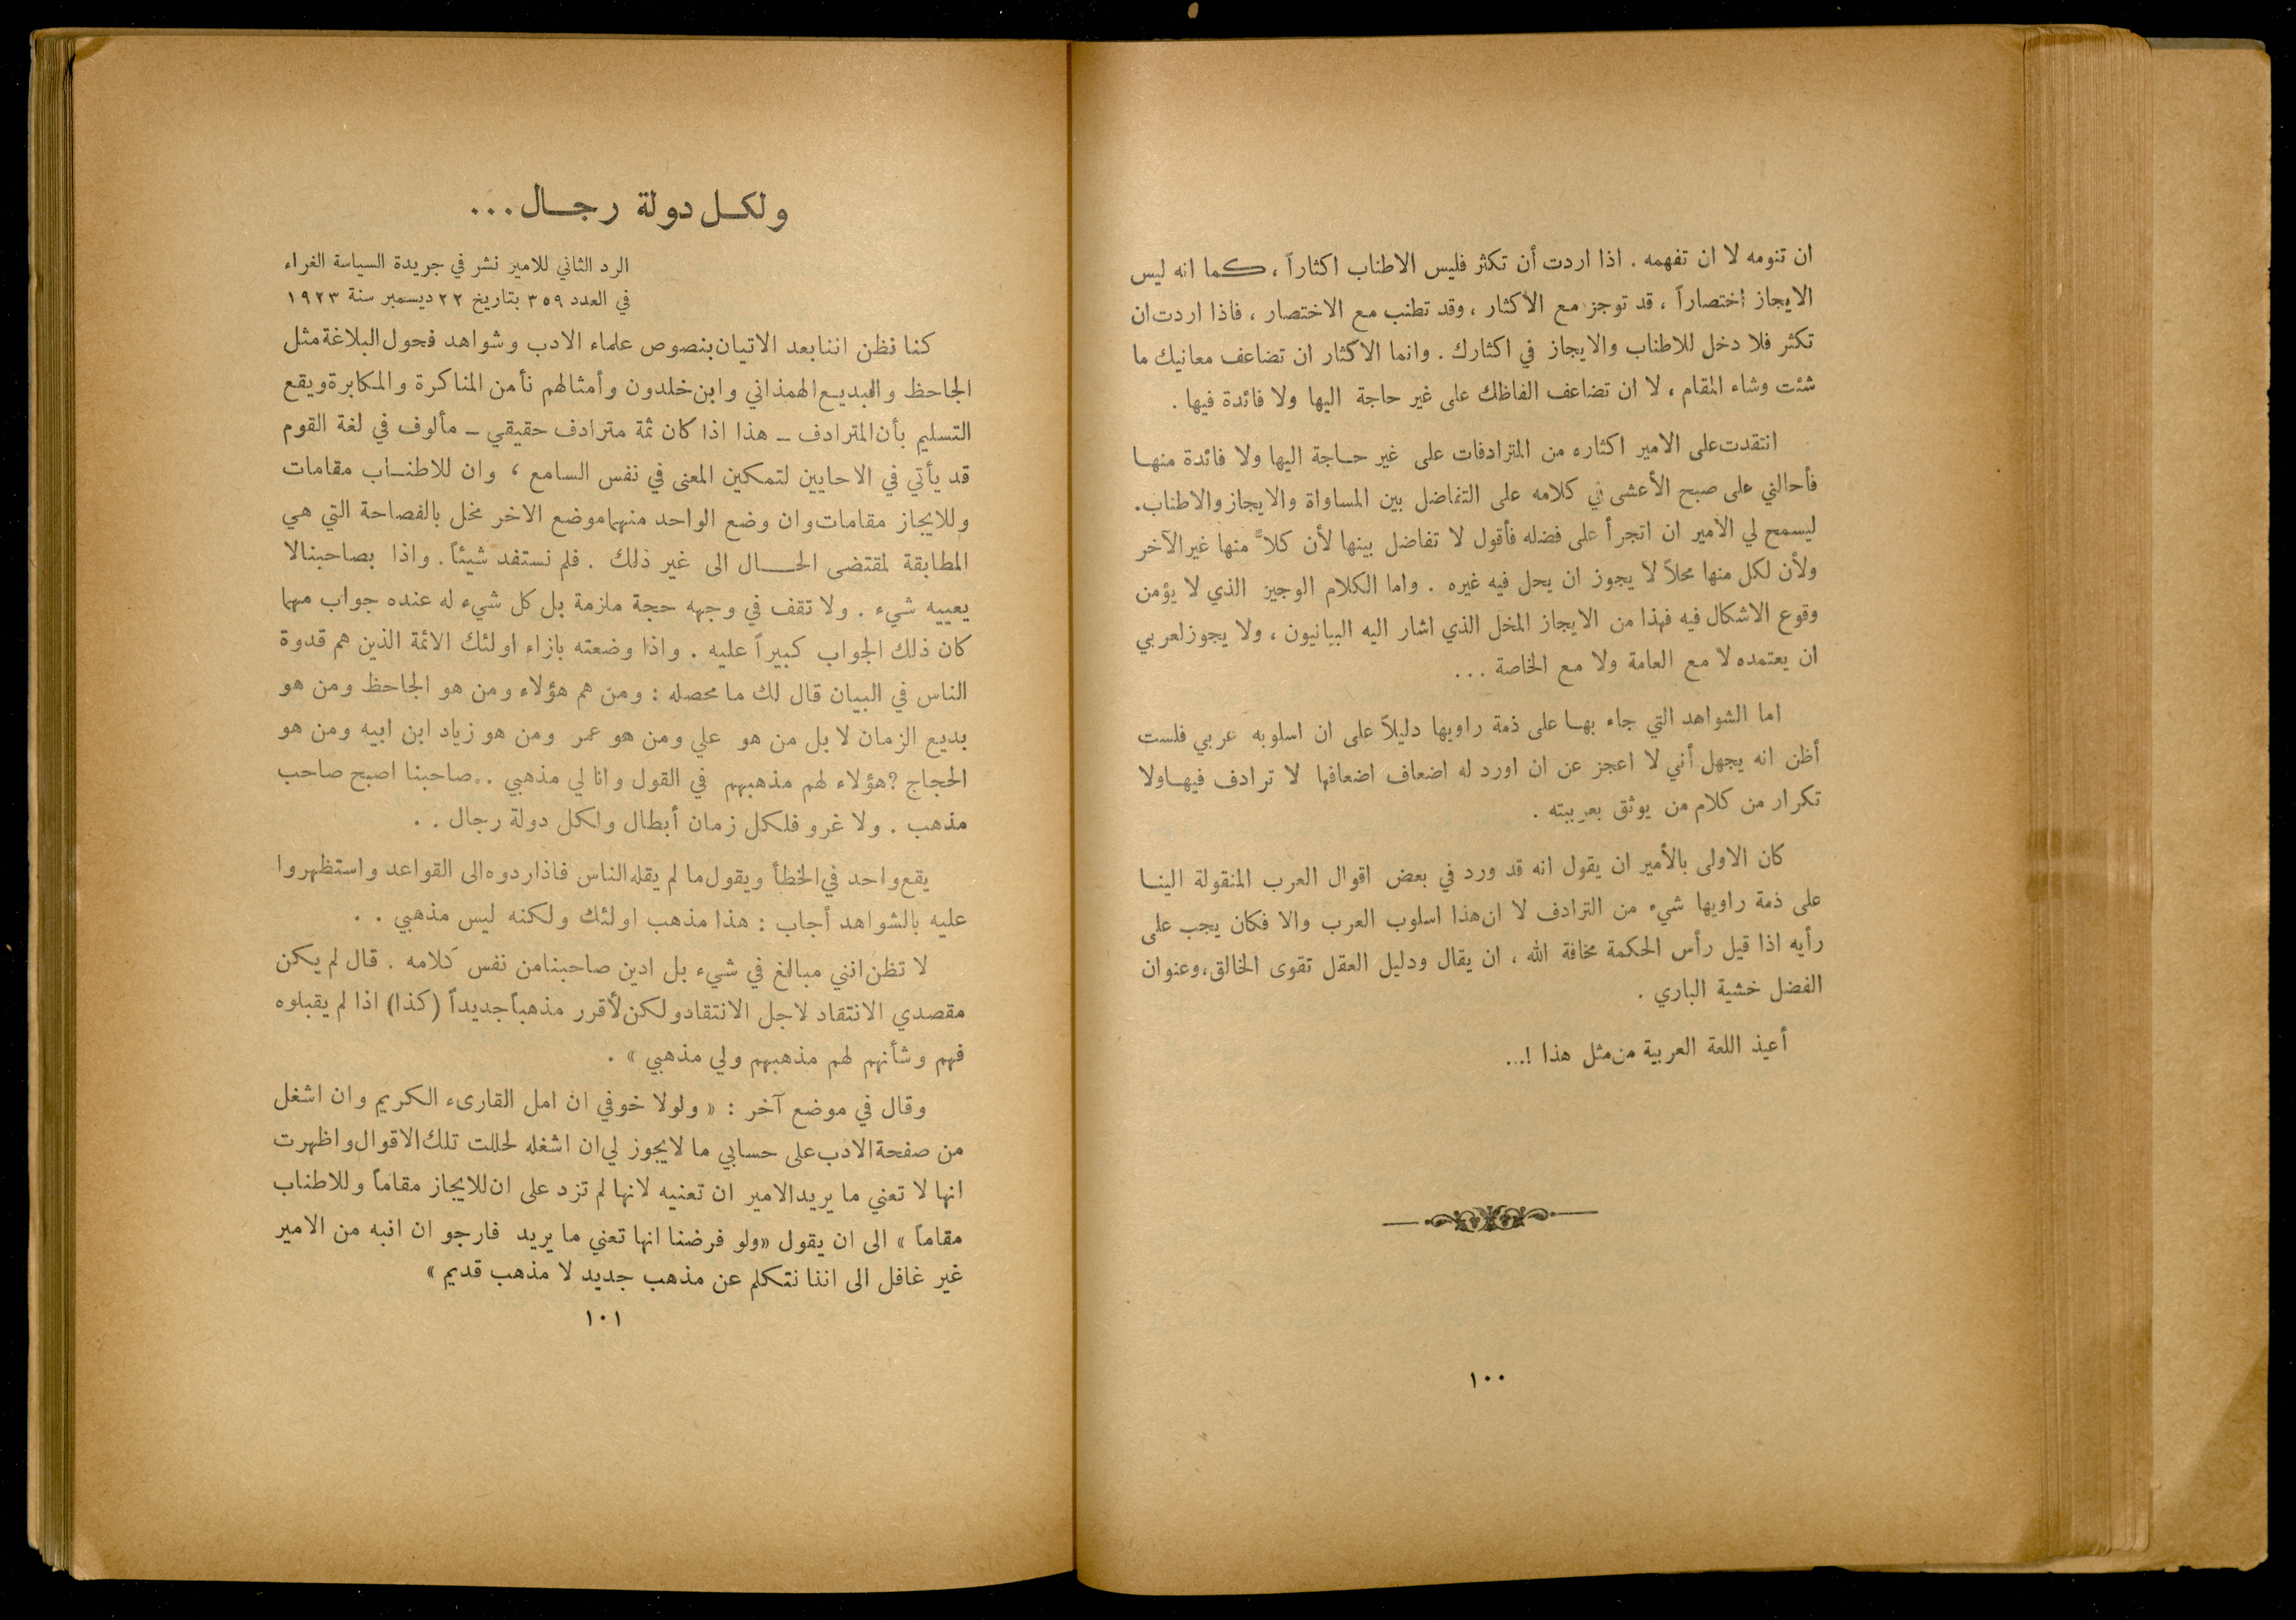 ان تنومه لا ان تفهمه . اذا اردت أن تكثر فليس الاطناب اكثاراً ، كما انه ليس
الايجاز اختصاراً ، قد توجز مع الاكثار ، وقد تطنب مع الاختصار ، فاذا اردت ان
تكثر فلا دخل للاطناب والايجاز في اكثارك . وانما الاكثار ان تضاعف معانيك ما
شئت وشاء المقام ، لا ان تضاعف الفاظك على غير حاجة اليها ولا فائدة فيها .
انتقدت على الامير اكثاره من المترادفات على غير حاجة اليها ولا فائدة منها
فأحالني على صبح الأعشى في كلامه على التفاضل بين المساواة والايجاز والاطناب.
ليسمح لي الامير ان اتجرأ على فضله فأقول لا تفاضل بينها لأن كلاً منها غير الآخر
ولأن لكل منها محلاً لا يجوز ان يحل فيه غيره . واما الكلام الوجيز الذي لا يؤمن
وقوع الاشكال فيه فهذا من الايجاز المخل الذي اشار اليه البيانيون ، ولا يجوز لعربي
ان يعتمده لا مع العامة ولا مع الخاصة ...
اما الشواهد التي جاء بها على ذمة راويها دليلاً على ان اسلوبه عربي فلست
أظن انه يجهل أني لا اعجز عن ان اورد له اضعاف اضعافها لا ترادف فيها ولا
تكرار من كلام من يوثق بعربيته .
كان الاولى بالأمير ان يقول انه قد ورد في بعض اقوال العرب المنقولة الينا
على ذمة راويها شيء من الترادف لا ان هذا اسلوب العرب والا فكان يجب على
رأيه اذا قيل رأس الحكمة مخافة الله ، ان يقال ودليل العقل تقوى الخالق، وعنوان
الفضل خشية الباري .
أعيذ اللغة العربية من مثل هذا !...
١٠٠
ولكل دولة رجال ...
الرد الثاني للامير نشر في جريدة السياسة الغراء
في العدد ٣٥٩ بتاريخ ٢٢ ديسمبر سنة ١٩٢٣
كنا نظن اننا بعد الاتيان بنصوص علماء الادب وشواهد فحول البلاغة مثل
الجاحظ والبديع الهمذاني وابن خلدون وأمثالهم نأمن المناكرة والمكابرة ويقع
التسليم بأن المترادف ــ هذا اذا كان ثمة مترادف حقيقي ــ مألوف في لغة القوم
قد يأتي في الاحايين لتمكين المعنى في نفس السامع ، وان للاطناب مقامات
وللايجاز مقامات وان وضع الواحد منهما موضع الاخر مخل بالفصاحة التي هي
المطابقة لمقتضى الحال الى غير ذلك . فلم نستفد شيئاً . واذا بصاحبنا لا
يعييه شيء . ولا تقف في وجهه حجة ملزمة بل كل شيء له عنده جواب مهما
كان ذلك الجواب كبيراً عليه . واذا وضعته بازاء اولئك الائمة الذين هم قدوة
الناس في البيان قال لك ما محصله : ومن هم هؤلاء ومن هو الجاحظ ومن هو
بديع الزمان لا بل من هو علي ومن هو عمر ومن هو زياد ابن ابيه ومن هو
الحجاج ؟ هؤلاء لهم مذهبهم في القول وانا لي مذهبي . . صاحبنا اصبح صاحب
مذهب . ولا غرو فلكل زمان أبطال ولكل دولة رجال . .
يقع واحد في الخطأ ويقول ما لم يقله الناس فاذا ردوه الى القواعد واستظهروا
عليه بالشواهد أجاب : هذا مذهب اولئك ولكنه ليس مذهبي . .
لا تظن انني مبالغ في شيء بل ادين صاحبنا من نفس كلامه . قال لم يكن
مقصدي الانتقاد لاجل الانتقاد ولكن لأقرر مذهباً جديداً (كذا) اذا لم يقبلوه
فهم وشأنهم لهم مذهبهم ولي مذهبي » .
وقال في موضع آخر : « ولولا خوفي ان امل القارىء الكريم وان اشغل
من صفحة الادب على حسابي ما لا يجوز لي ان اشغله لحللت تلك الاقوال واظهرت
انها لا تعني ما يريد الامير ان تعنيه لانها لم تزد على ان للايجاز مقاماً وللاطناب
مقاماً » الى ان يقول «ولو فرضنا انها تعني ما يريد فارجو ان انبه من الامير
غير غافل الى اننا نتكلم عن مذهب جديد لا مذهب قديم »
١٠١